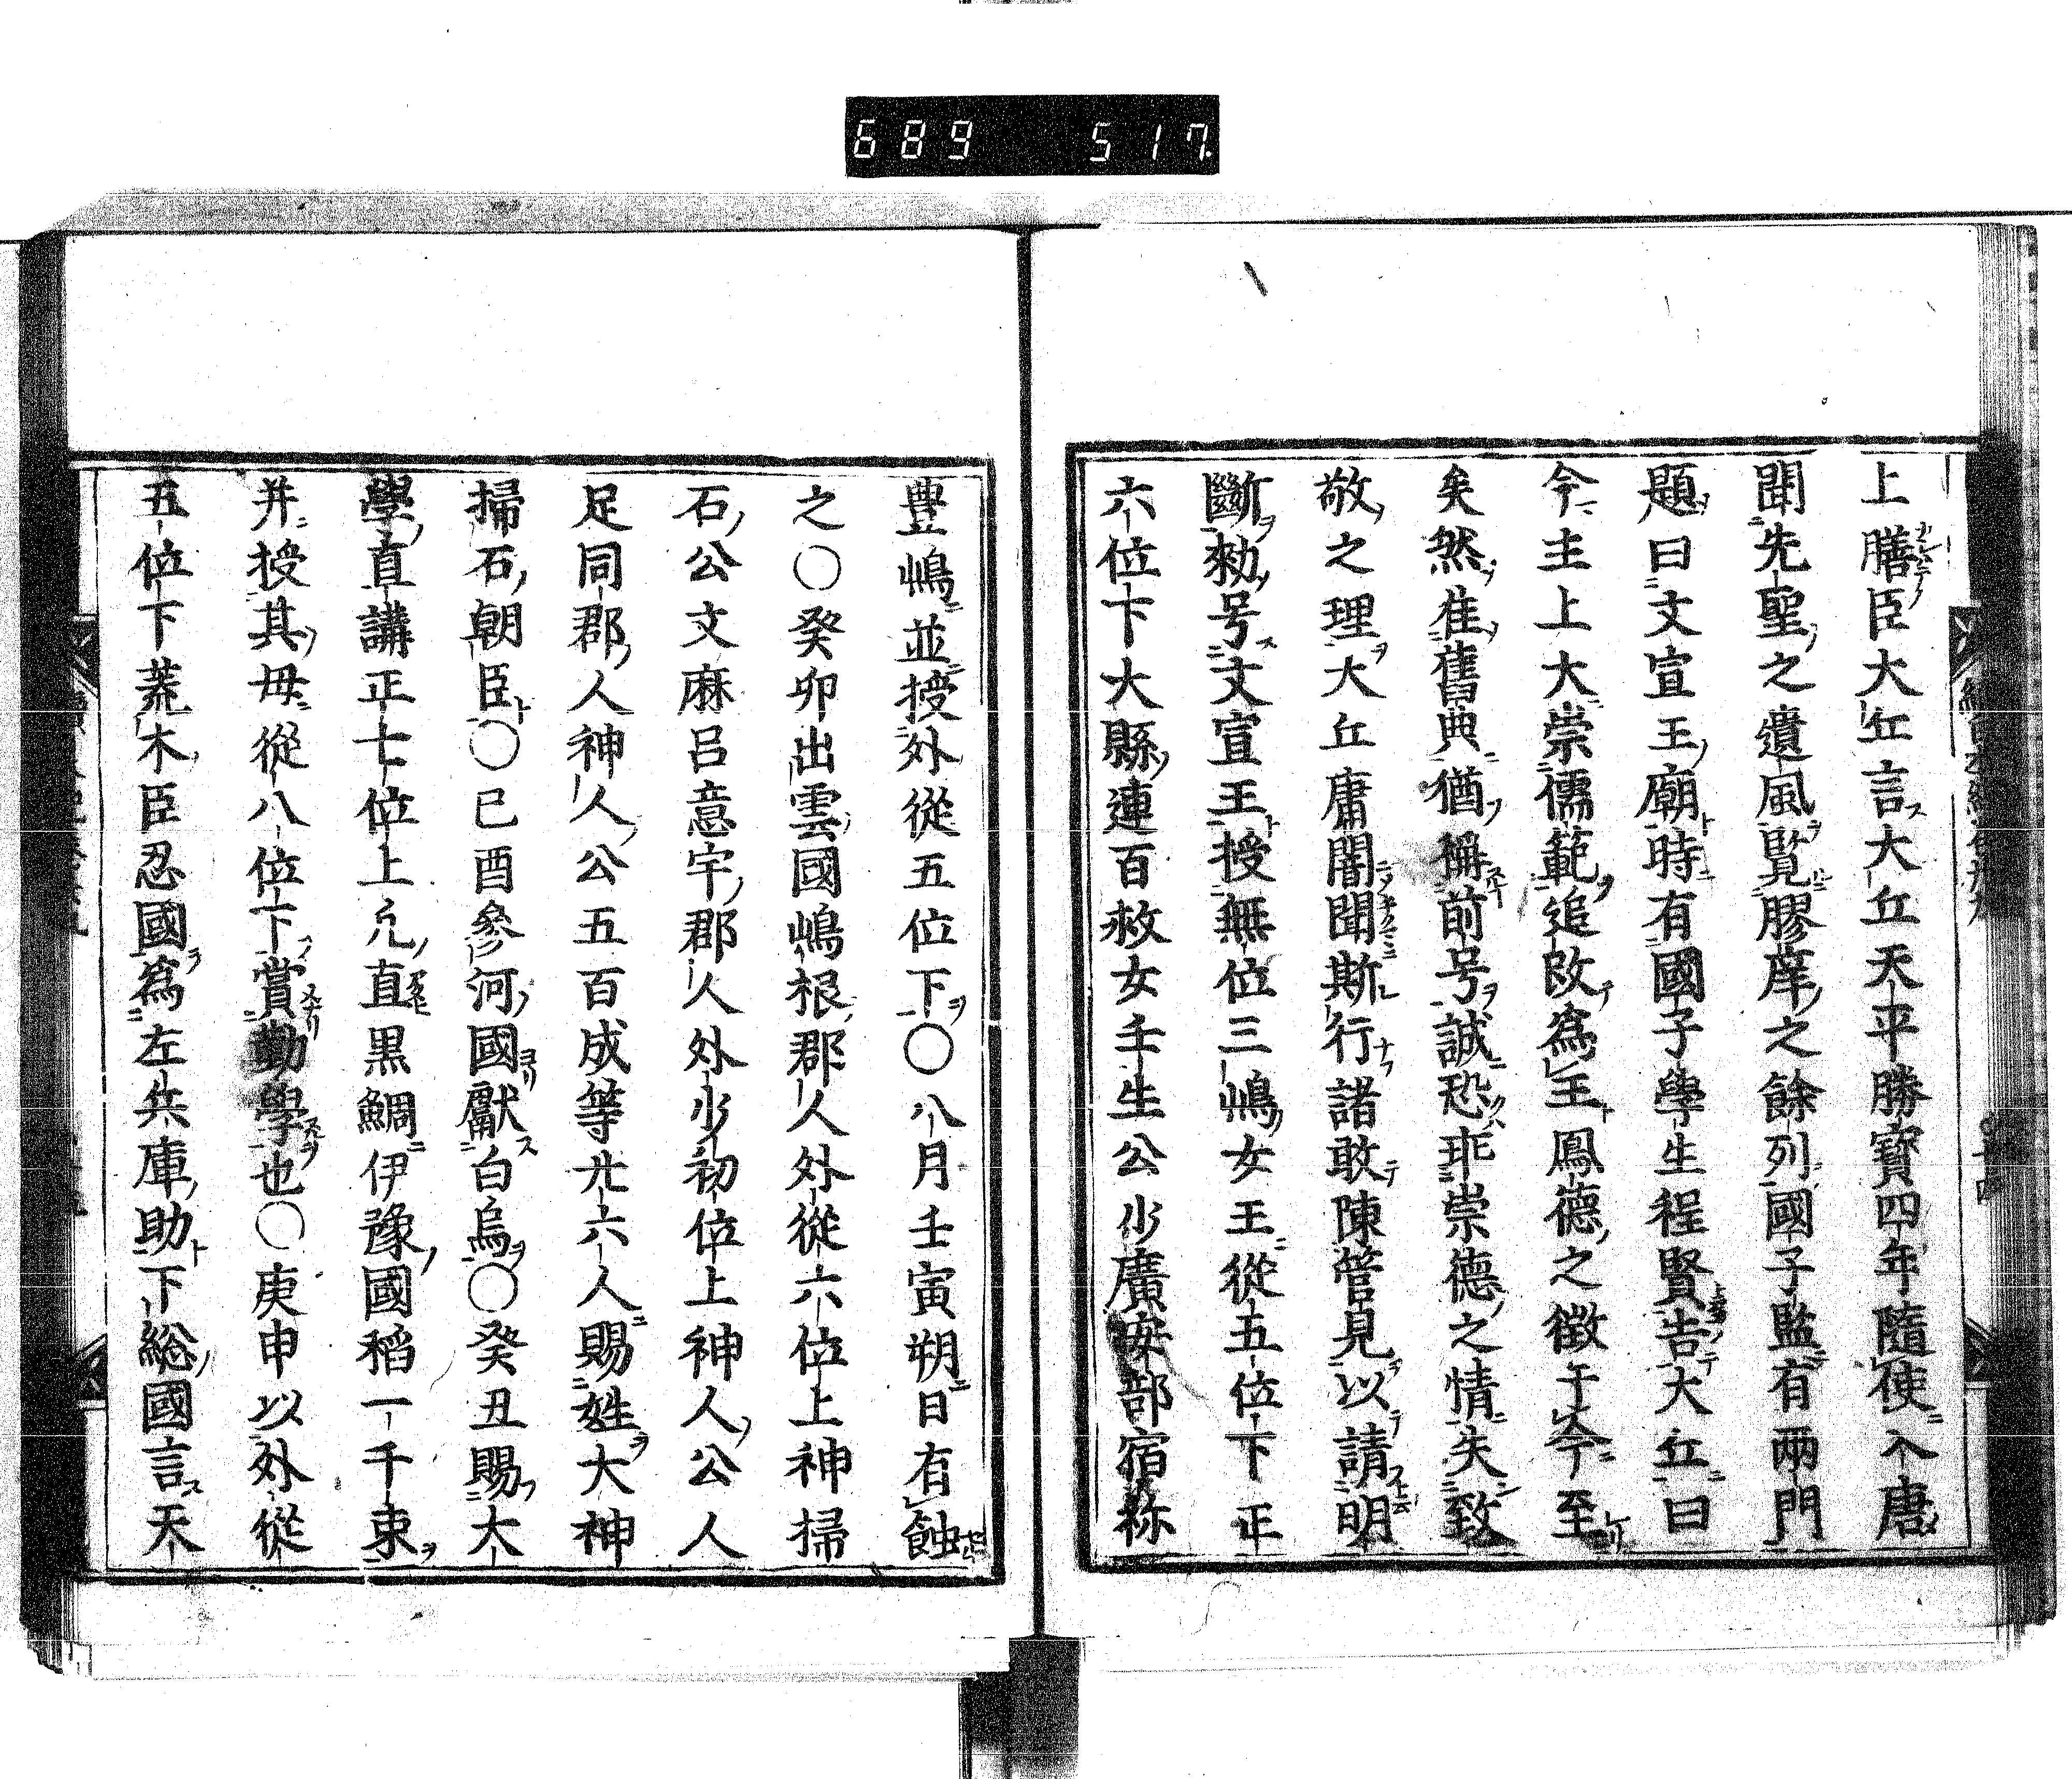 689 517
上膳臣大丘言大丘天平勝寶四年隨使入唐
聞先聖之遺風覽膠庠之餘列國子監有兩門
題曰文宣王廟時有國子學生程賢告大丘曰
今主上大崇儒範追改爲王鳳德之徵于今至
矣然准舊典猶稱前号誠恐乖崇德之情失致
敬之理大丘庸闇聞斯行諸敢陳管見以請明
斷勅号文宣王授無位三嶋女王從五位下正
六位下大縣連百枚女壬生公少廣安部宿祢
豊嶋並授外從五位下○八月壬寅朔日有蝕
之○癸卯出雲國嶋根郡人外從六位上神掃
石公文麻呂意宇郡人外少初位上神人公人
足同郡人神人公五百成等廿六人賜姓大神
掃石朝臣○己酉參河國獻白烏○癸丑賜大
學直講正七位上凡直黒鯛伊豫國稻一千束
并授其母從八位下賞勤學也○庚申以外從
五位下菾木臣忍國爲左兵庫助下総國言天